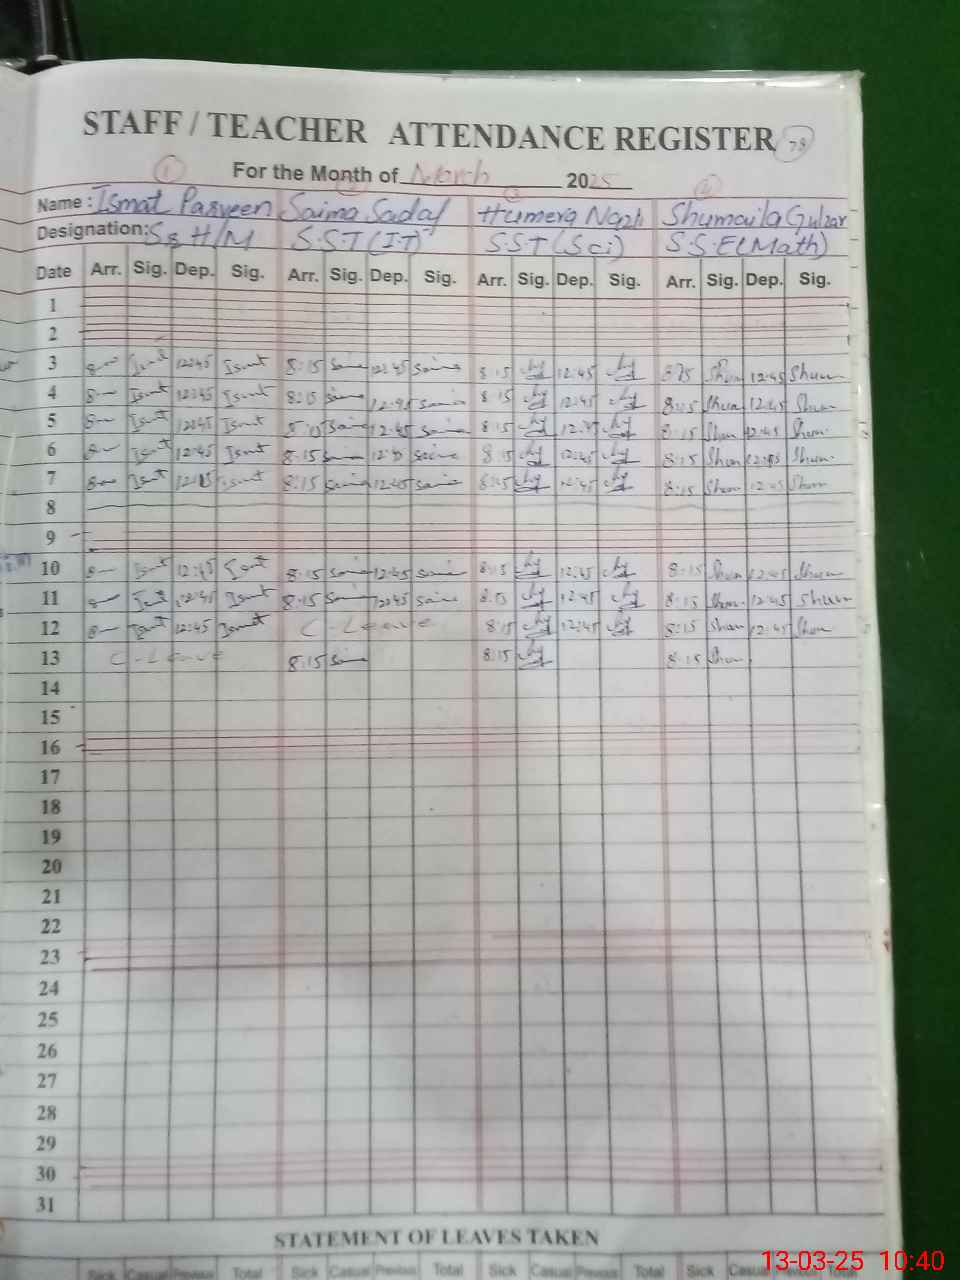 STAFF / TEACHER ATTENDANCE REGISTER 78
For the Month of March 2025
1 2 3 4
Name: Ismat Parveen Saima Sadaf Humera Nazli Shumaila Gulzar
Designation: SS H/M S.S.T (I.T) S.S.T (Sci) S.S.E (Math)
Date Arr. Sig. Dep. Sig. Arr. Sig. Dep. Sig. Arr. Sig. Dep. Sig. Arr. Sig. Dep. Sig.
1
2
3 8— Ismt 12:45 Ismt 8:15 Saima 12:45 Saima 8:15 12:45 8:15 Shum 12:45 Shum
4 8— Ismt 12:45 Ismt 8:15 Saima 12:45 Saima 8:15 12:45 8:15 Shum 12:45 Shum
5 8— Ismt 12:45 Ismt 8:15 Saima 12:45 Saima 8:15 12:45 8:15 Shum 12:45 Shum
6 8— Ismt 12:45 Ismt 8:15 Saima Saima 8:15 12:45 8:15 Shum 12:45 Shum
7 8— Ismt 12:45 Ismt 8:15 Saima 12:45 Saima 8:15 12:45 8:15 Shum 12:45 Shum
8
9
10 8— Ismt 12:45 Ismt 8:15 Saima 12:45 Saima 8:15 12:45 8:15 Shum 12:45 Shum
11 8— Ismt 12:45 Ismt 8:15 Saima 12:45 Saima 8:15 12:45 8:15 Shum 12:45 Shum
12 8— Ismt 12:45 Ismt C-Leave 8:15 12:45 8:15 Shum 12:45 Shum
13 C-Leave 8:15 Saima 8:15 8:15 Shum
14
15
16
17
18
19
20
21
22
23
24
25
26
27
28
29
30
31
STATEMENT OF LEAVES TAKEN
Sick Casual Previous Total Sick Casual Previous Total Sick Casual Previous Total Sick Casual Previous Total
13-03-25 10:40